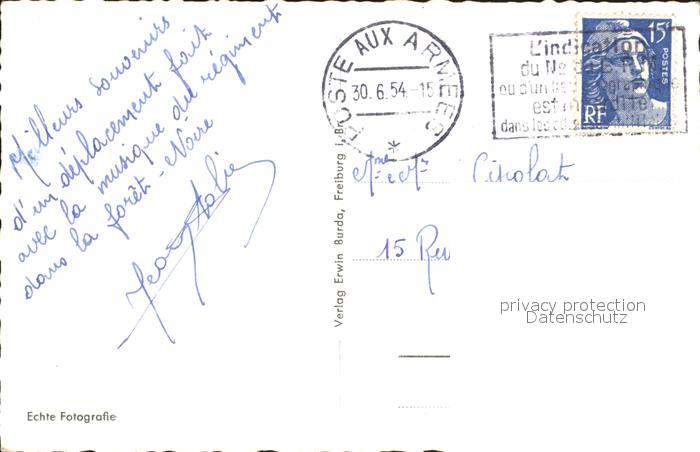 Meilleurs souvenirs
d'un déplacement fait
avec la musique du régiment
dans la forêt-Noire
Echte Fotografie
Verlag Erwin Burda, Freiburg i. Br.
POSTE AUX ARMÉES
30.6.54-15
*
L'indication
du No
ou d'un
est
dans les
15F
POSTES
RF
Mme & Mr
15 Rue
privacy protection
Datenschutz